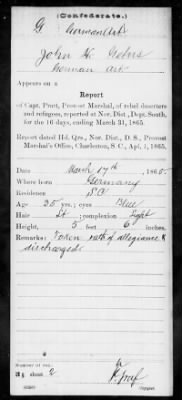 (Confederate.)
G German Art
John H.
German Art
Appears on a
Report
of Capt. Pratt, Provost Marshal, of rebel deserters
and refugees, reported at Nor. Dist., Dept. South,
for the 16 days, ending March 31, 1865.
Report dated Hd. Qrs., Nor. Dist., D. S., Provost
Marshal's Office, Charleston, S. C., Apl. 1, 1865.
Date March 17th, 1865
Where born Germany
Residence S.C.
Age 35 yrs.; eyes Blue
Hair Lt; complexion Light
Height, 5 feet 6 inches.
Remarks: Taken oath of allegiance &
discharged
Number of roll:
sheet 2
Copyist.